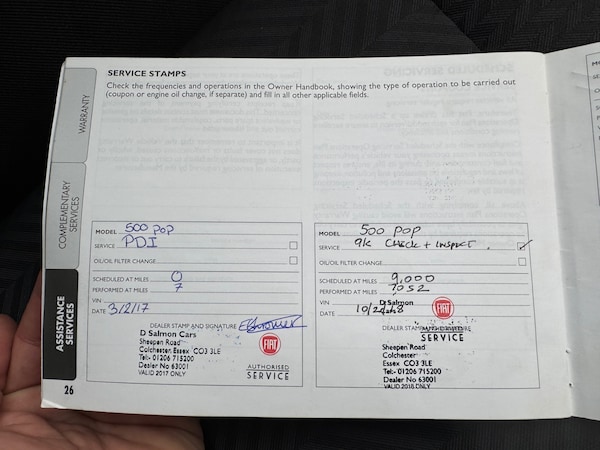 SERVICE STAMPS
Check the frequencies and operations in the Owner Handbook, showing the type of operation to be carried out
(coupon or engine oil change, if separate) and fill in all other applicable fields.
WARRANTY
COMPLEMENTARY
SERVICES
ASSISTANCE
SERVICES
MODEL 500 POP
SERVICE PDI
OIL/OIL FILTER CHANGE
SCHEDULED AT MILES 0
PERFORMED AT MILES 7
VIN
DATE 3/2/17
DEALER STAMP AND SIGNATURE
D Salmon Cars
Sheepen Road
Colchester Essex CO3 3LE
Tel:- 01206 715200
Dealer No 63001
VALID 2017 ONLY
FIAT
AUTHORISED
SERVICE
MODEL 500 POP
SERVICE 9K CHECK + INSPECT
OIL/OIL FILTER CHANGE
SCHEDULED AT MILES 9,000
PERFORMED AT MILES 7052
VIN
D Salmon
Cars
DATE
DEALER STAMP
SERVICE
FIAT
Sheepen Road
Colchester
Essex CO3 3LE
Tel:- 01206 715200
Dealer No 63001
VALID 2018 ONLY
26